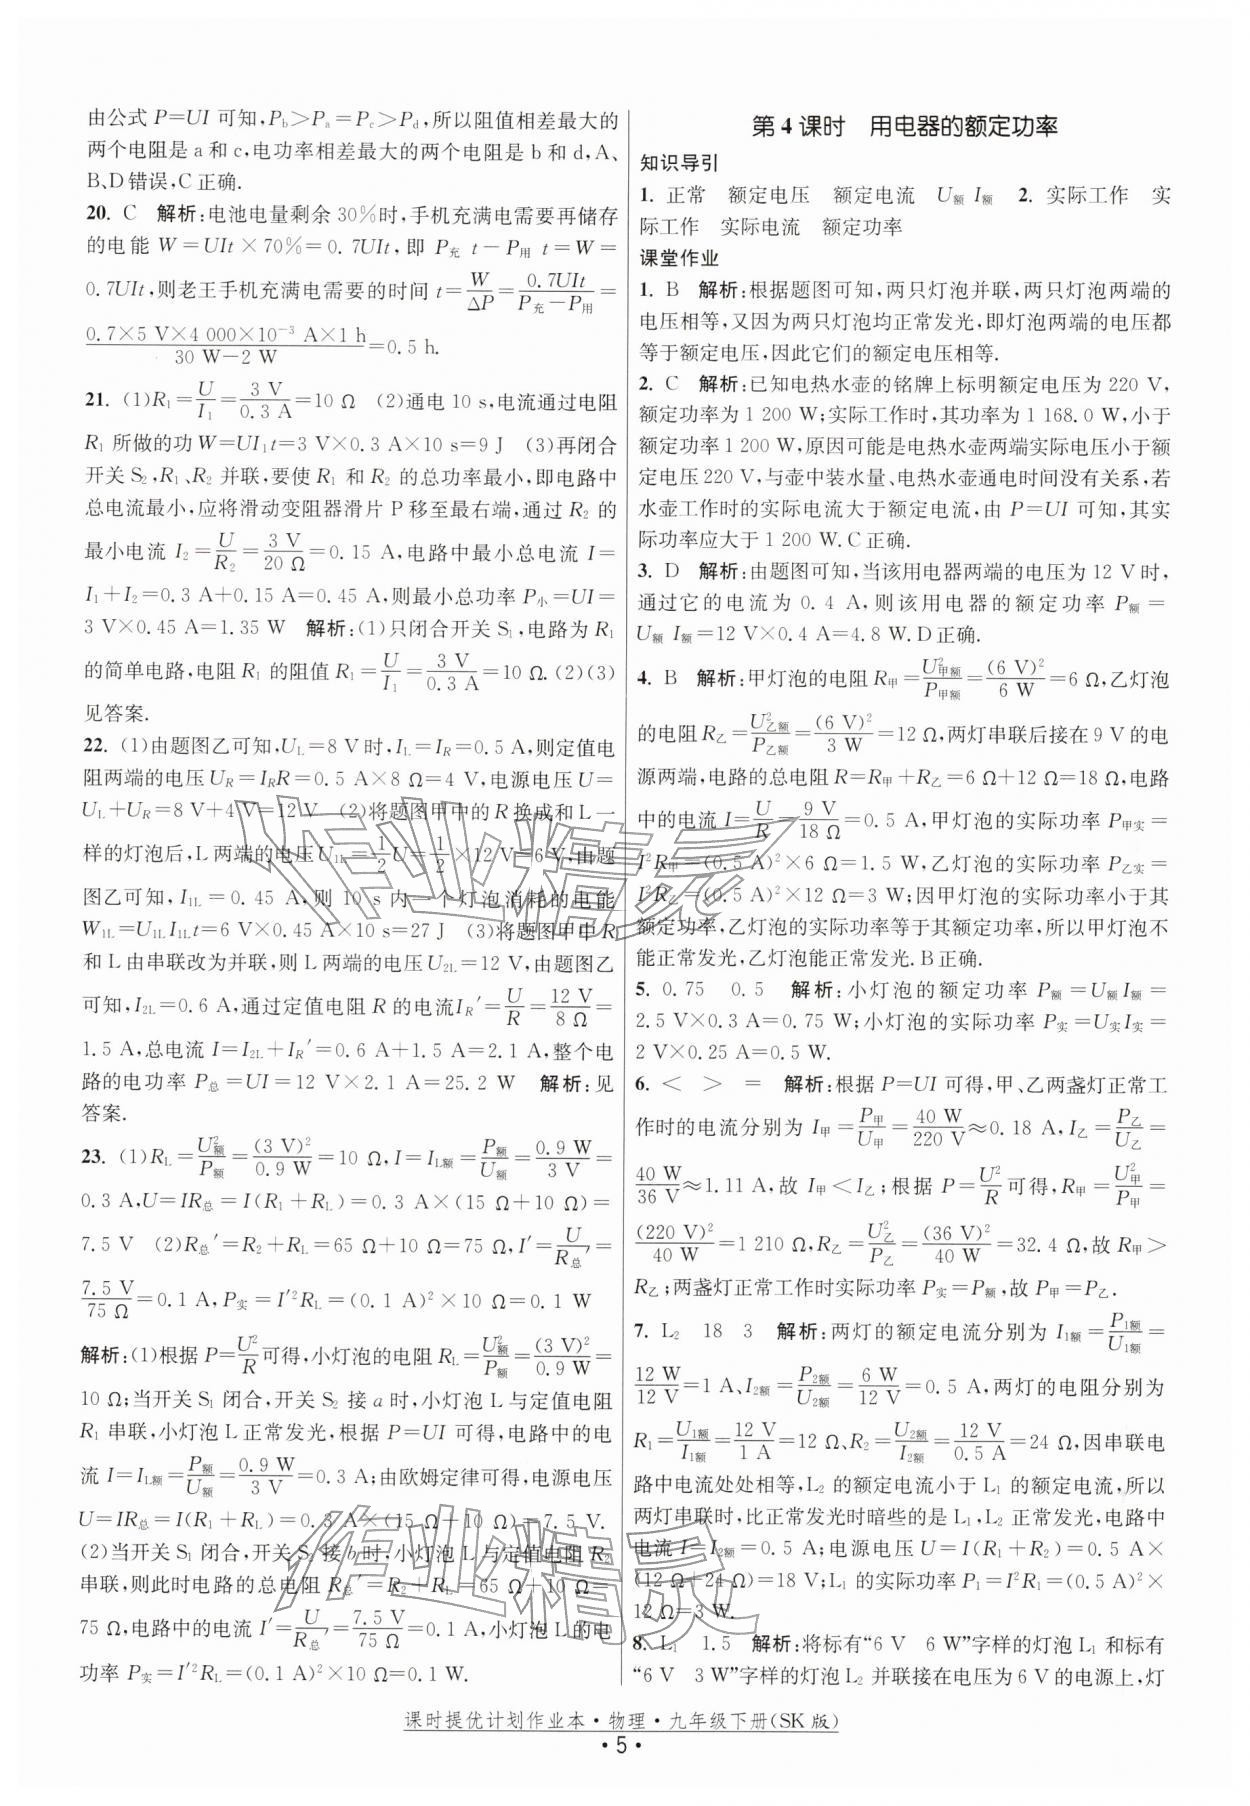 由公式 P=UI 可知,P_b>P_a=P_c>P_d,所以阻值相差最大的
两个电阻是 a 和 c,电功率相差最大的两个电阻是 b 和 d,A、
B、D 错误,C 正确.
20. C 解析:电池电量剩余 30%时,手机充满电需要再储存
的电能 W=UIt×70%=0.7UIt,即 P充 t-P用 t=W=
0.7UIt,则老王手机充满电需要的时间 t=W/ΔP=0.7UIt/(P充-P用)=
(0.7×5 V×4 000×10⁻³ A×1 h)/(30 W-2 W)=0.5 h.
21. (1)R₁=U/I₁=3 V/0.3 A=10 Ω (2)通电 10 s,电流通过电阻
R₁ 所做的功 W=UI₁t=3 V×0.3 A×10 s=9 J (3)再闭合
开关 S₂,R₁、R₂ 并联,要使 R₁ 和 R₂ 的总功率最小,即电路中
总电流最小,应将滑动变阻器滑片 P 移至最右端,通过 R₂ 的
最小电流 I₂=U/R₂=3 V/20 Ω=0.15 A,电路中最小总电流 I=
I₁+I₂=0.3 A+0.15 A=0.45 A,则最小总功率 P小=UI=
3 V×0.45 A=1.35 W 解析:(1)只闭合开关 S₁,电路为 R₁
的简单电路,电阻 R₁ 的阻值 R₁=U/I₁=3 V/0.3 A=10 Ω.(2)(3)
见答案.
22. (1)由题图乙可知,U_L=8 V 时,I_L=I_R=0.5 A,则定值电
阻两端的电压 U_R=I_R R=0.5 A×8 Ω=4 V,电源电压 U=
U_L+U_R=8 V+4 V=12 V (2)将题图甲中的 R 换成和 L 一
样的灯泡后,L 两端的电压 U₁L=1/2 U=1/2×12 V=6 V,由题
图乙可知,I₁L=0.45 A,则 10 s 内一个灯泡消耗的电能
W₁L=U₁L I₁L t=6 V×0.45 A×10 s=27 J (3)将题图甲中 R
和 L 由串联改为并联,则 L 两端的电压 U₂L=12 V,由题图乙
可知,I₂L=0.6 A,通过定值电阻 R 的电流 I_R′=U/R=12 V/8 Ω=
1.5 A,总电流 I=I₂L+I_R′=0.6 A+1.5 A=2.1 A,整个电
路的电功率 P总=UI=12 V×2.1 A=25.2 W 解析:见
答案.
23. (1)R_L=U额²/P额=(3 V)²/0.9 W=10 Ω,I=I_L额=P额/U额=0.9 W/3 V=
0.3 A,U=IR总=I(R₁+R_L)=0.3 A×(15 Ω+10 Ω)=
7.5 V (2)R总′=R₂+R_L=65 Ω+10 Ω=75 Ω,I′=U/R总′=
7.5 V/75 Ω=0.1 A,P实=I′²R_L=(0.1 A)²×10 Ω=0.1 W
解析:(1)根据 P=U²/R 可得,小灯泡的电阻 R_L=U额²/P额=(3 V)²/0.9 W=
10 Ω;当开关 S₁ 闭合,开关 S₂ 接 a 时,小灯泡 L 与定值电阻
R₁ 串联,小灯泡 L 正常发光,根据 P=UI 可得,电路中的电
流 I=I_L额=P额/U额=0.9 W/3 V=0.3 A;由欧姆定律可得,电源电压
U=IR总=I(R₁+R_L)=0.3 A×(15 Ω+10 Ω)=7.5 V.
(2)当开关 S₁ 闭合,开关 S₂ 接 b 时,小灯泡 L 与定值电阻 R₂
串联,则此时电路的总电阻 R总′=R₂+R_L=65 Ω+10 Ω=
75 Ω,电路中的电流 I′=U/R总′=7.5 V/75 Ω=0.1 A,小灯泡 L 的电
功率 P实=I′²R_L=(0.1 A)²×10 Ω=0.1 W.
第 4 课时 用电器的额定功率
知识导引
1. 正常 额定电压 额定电流 U额 I额 2. 实际工作 实
际工作 实际电流 额定功率
课堂作业
1. B 解析:根据题图可知,两只灯泡并联,两只灯泡两端的
电压相等,又因为两只灯泡均正常发光,即灯泡两端的电压都
等于额定电压,因此它们的额定电压相等.
2. C 解析:已知电热水壶的铭牌上标明额定电压为 220 V,
额定功率为 1 200 W;实际工作时,其功率为 1 168.0 W,小于
额定功率 1 200 W,原因可能是电热水壶两端实际电压小于额
定电压 220 V,与壶中装水量、电热水壶通电时间没有关系,若
水壶工作时的实际电流大于额定电流,由 P=UI 可知,其实
际功率应大于 1 200 W.C 正确.
3. D 解析:由题图可知,当该用电器两端的电压为 12 V 时,
通过它的电流为 0.4 A,则该用电器的额定功率 P额=
U额 I额=12 V×0.4 A=4.8 W.D 正确.
4. B 解析:甲灯泡的电阻 R甲=U甲额²/P甲额=(6 V)²/6 W=6 Ω,乙灯泡
的电阻 R乙=U乙额²/P乙额=(6 V)²/3 W=12 Ω,两灯串联后接在 9 V 的电
源两端,电路的总电阻 R=R甲+R乙=6 Ω+12 Ω=18 Ω,电路
中的电流 I=U/R=9 V/18 Ω=0.5 A,甲灯泡的实际功率 P甲实=
I²R甲=(0.5 A)²×6 Ω=1.5 W,乙灯泡的实际功率 P乙实=
I²R乙=(0.5 A)²×12 Ω=3 W;因甲灯泡的实际功率小于其
额定功率,乙灯泡的实际功率等于其额定功率,所以甲灯泡不
能正常发光,乙灯泡能正常发光.B 正确.
5. 0.75 0.5 解析:小灯泡的额定功率 P额=U额I额=
2.5 V×0.3 A=0.75 W;小灯泡的实际功率 P实=U实I实=
2 V×0.25 A=0.5 W.
6. < > = 解析:根据 P=UI 可得,甲、乙两盏灯正常工
作时的电流分别为 I甲=P甲/U甲=40 W/220 V≈0.18 A,I乙=P乙/U乙=
40 W/36 V≈1.11 A,故 I甲<I乙;根据 P=U²/R 可得,R甲=U甲²/P甲=
(220 V)²/40 W=1 210 Ω,R乙=U乙²/P乙=(36 V)²/40 W=32.4 Ω,故 R甲>
R乙;两盏灯正常工作时实际功率 P实=P额,故 P甲=P乙.
7. L₂ 18 3 解析:两灯的额定电流分别为 I₁额=P₁额/U₁额=
12 W/12 V=1 A、I₂额=P₂额/U₂额=6 W/12 V=0.5 A,两灯的电阻分别为
R₁=U₁额/I₁额=12 V/1 A=12 Ω、R₂=U₂额/I₂额=12 V/0.5 A=24 Ω,因串联电
路中电流处处相等,L₂ 的额定电流小于 L₁ 的额定电流,所以
两灯串联时,比正常发光时暗些的是 L₁,L₂ 正常发光,电路中
电流 I=I₂额=0.5 A;电源电压 U=I(R₁+R₂)=0.5 A×
(12 Ω+24 Ω)=18 V;L₁ 的实际功率 P₁=I²R₁=(0.5 A)²×
12 Ω=3 W.
8. L₁ 1.5 解析:将标有“6 V 6 W”字样的灯泡 L₁ 和标有
“6 V 3 W”字样的灯泡 L₂ 并联接在电压为 6 V 的电源上,灯
课时提优计划作业本·物理·九年级下册(SK 版)
· 5 ·
作业精灵
作业精灵